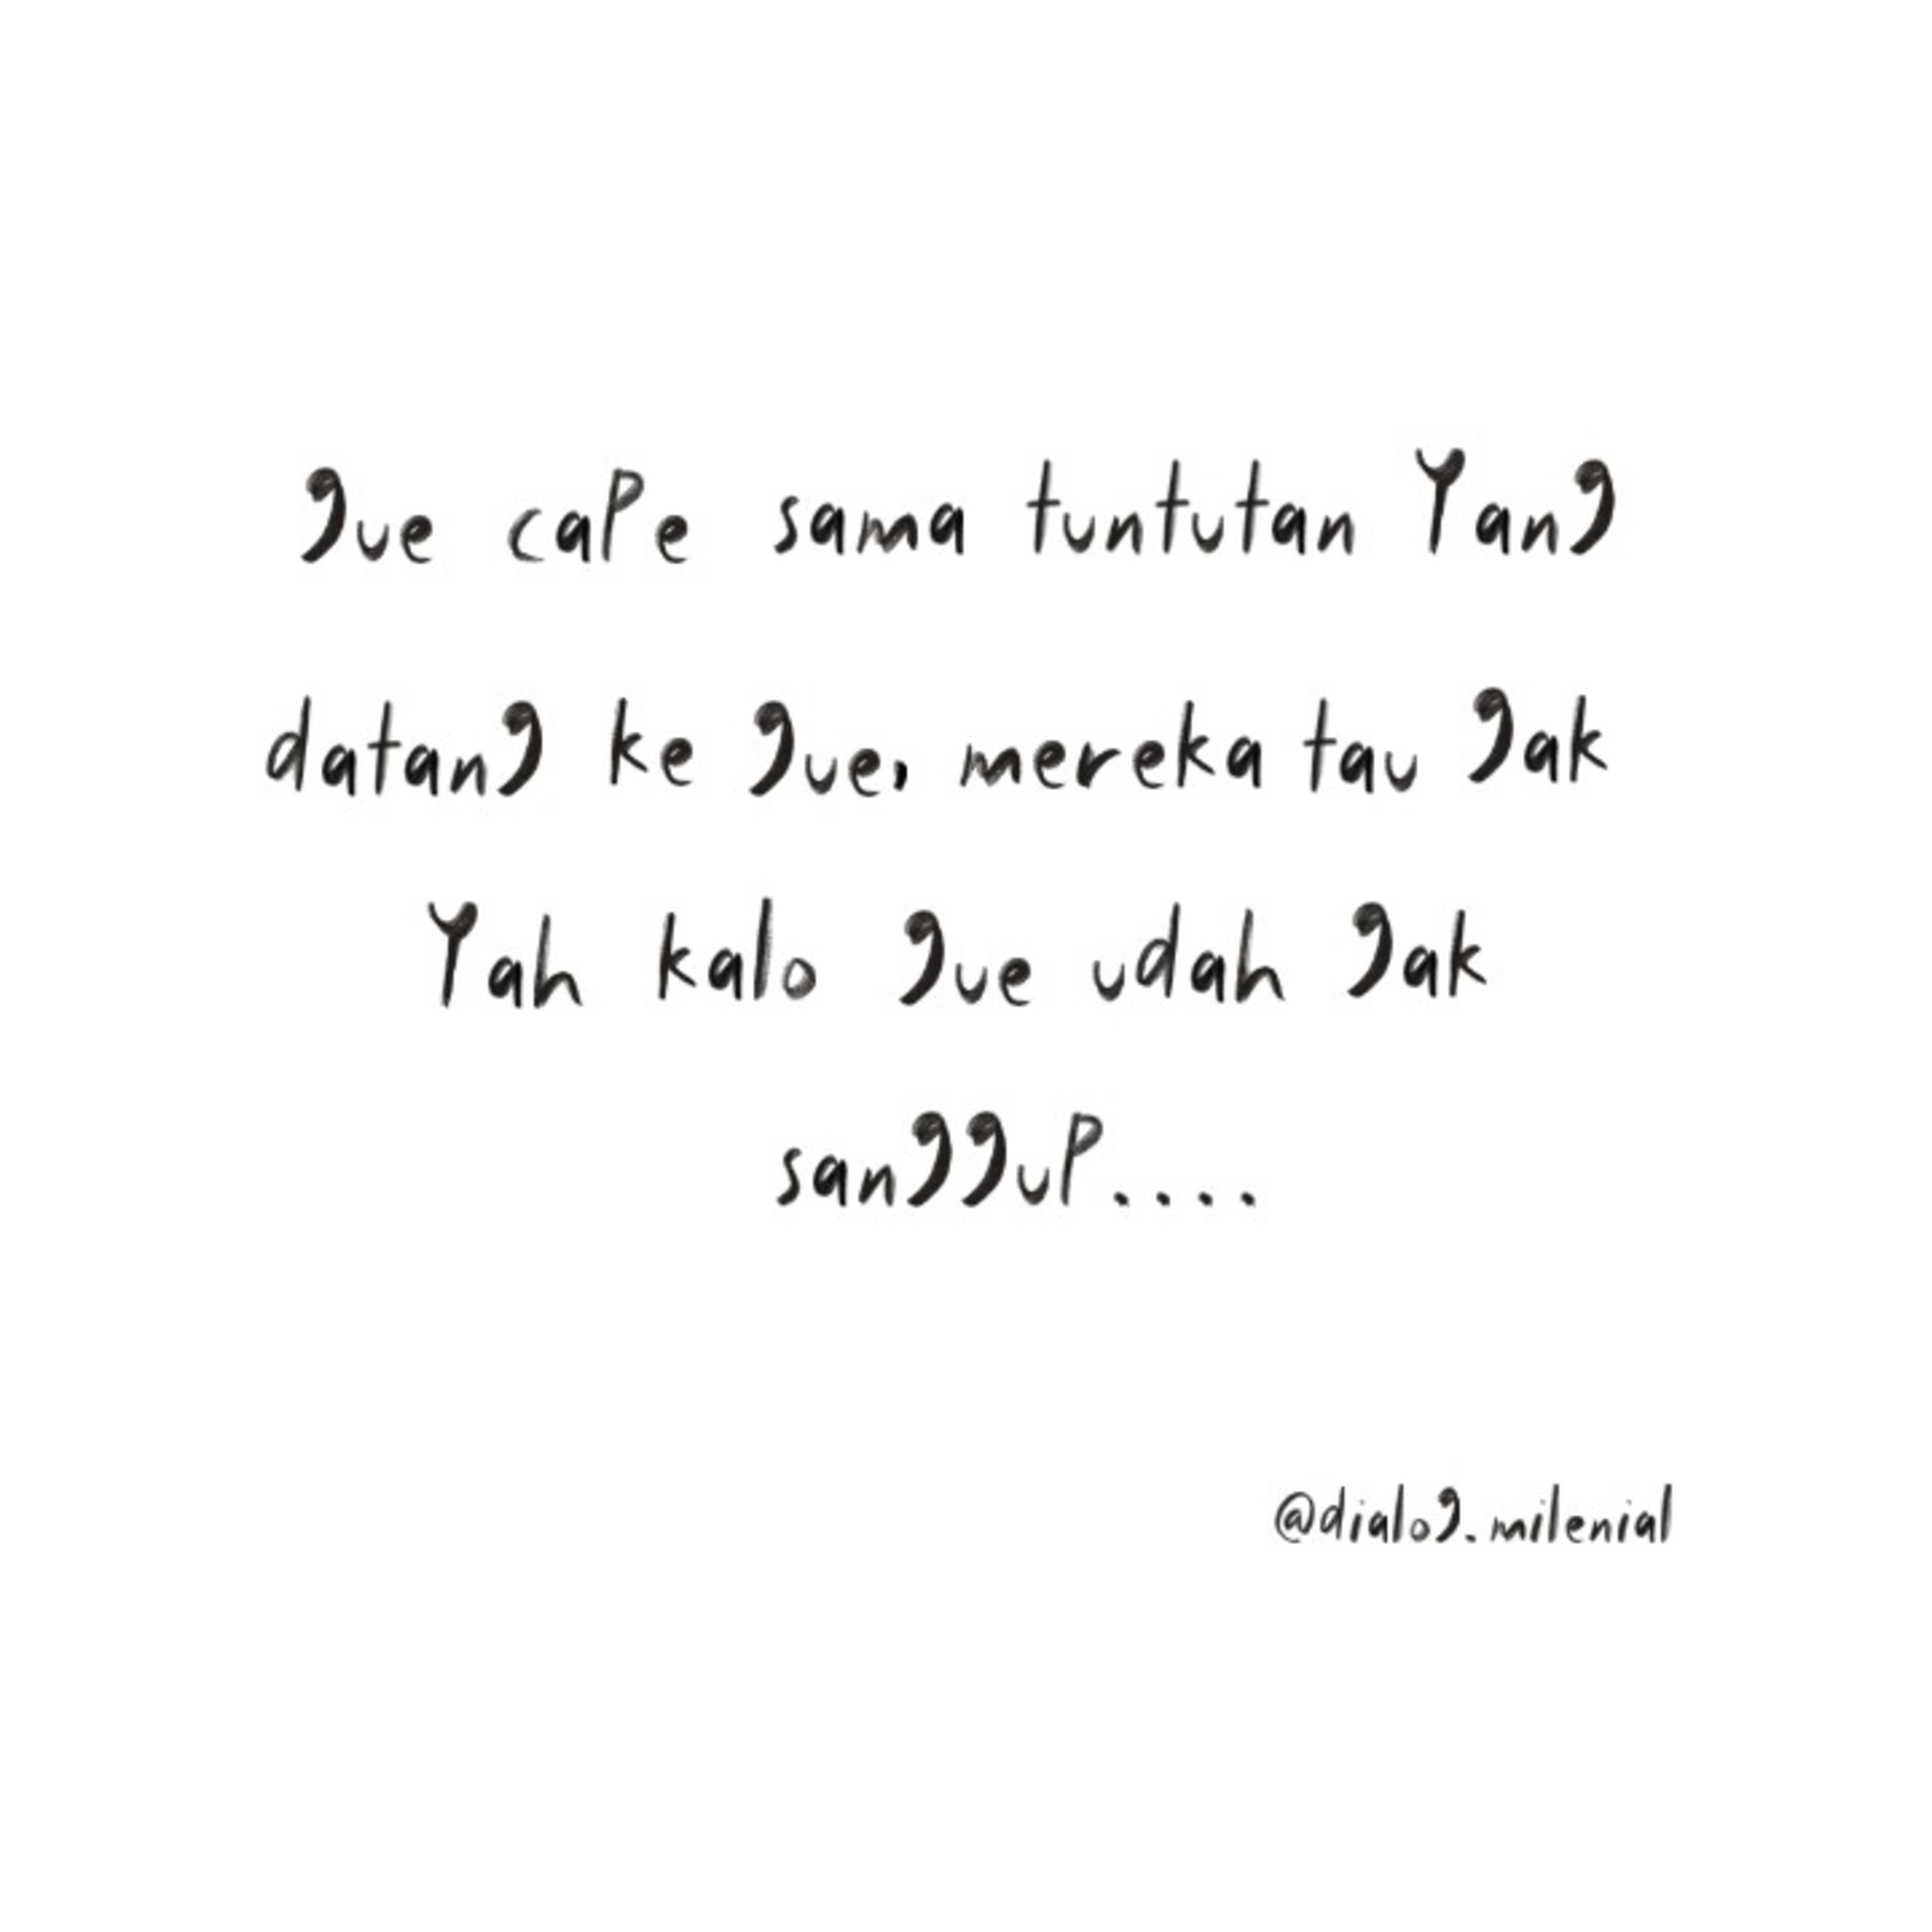 gue cape sama tuntutan Yang
datang ke gue, mereka tau gak
Yah kalo gue udah gak
sanggup....
@dialog.milenial